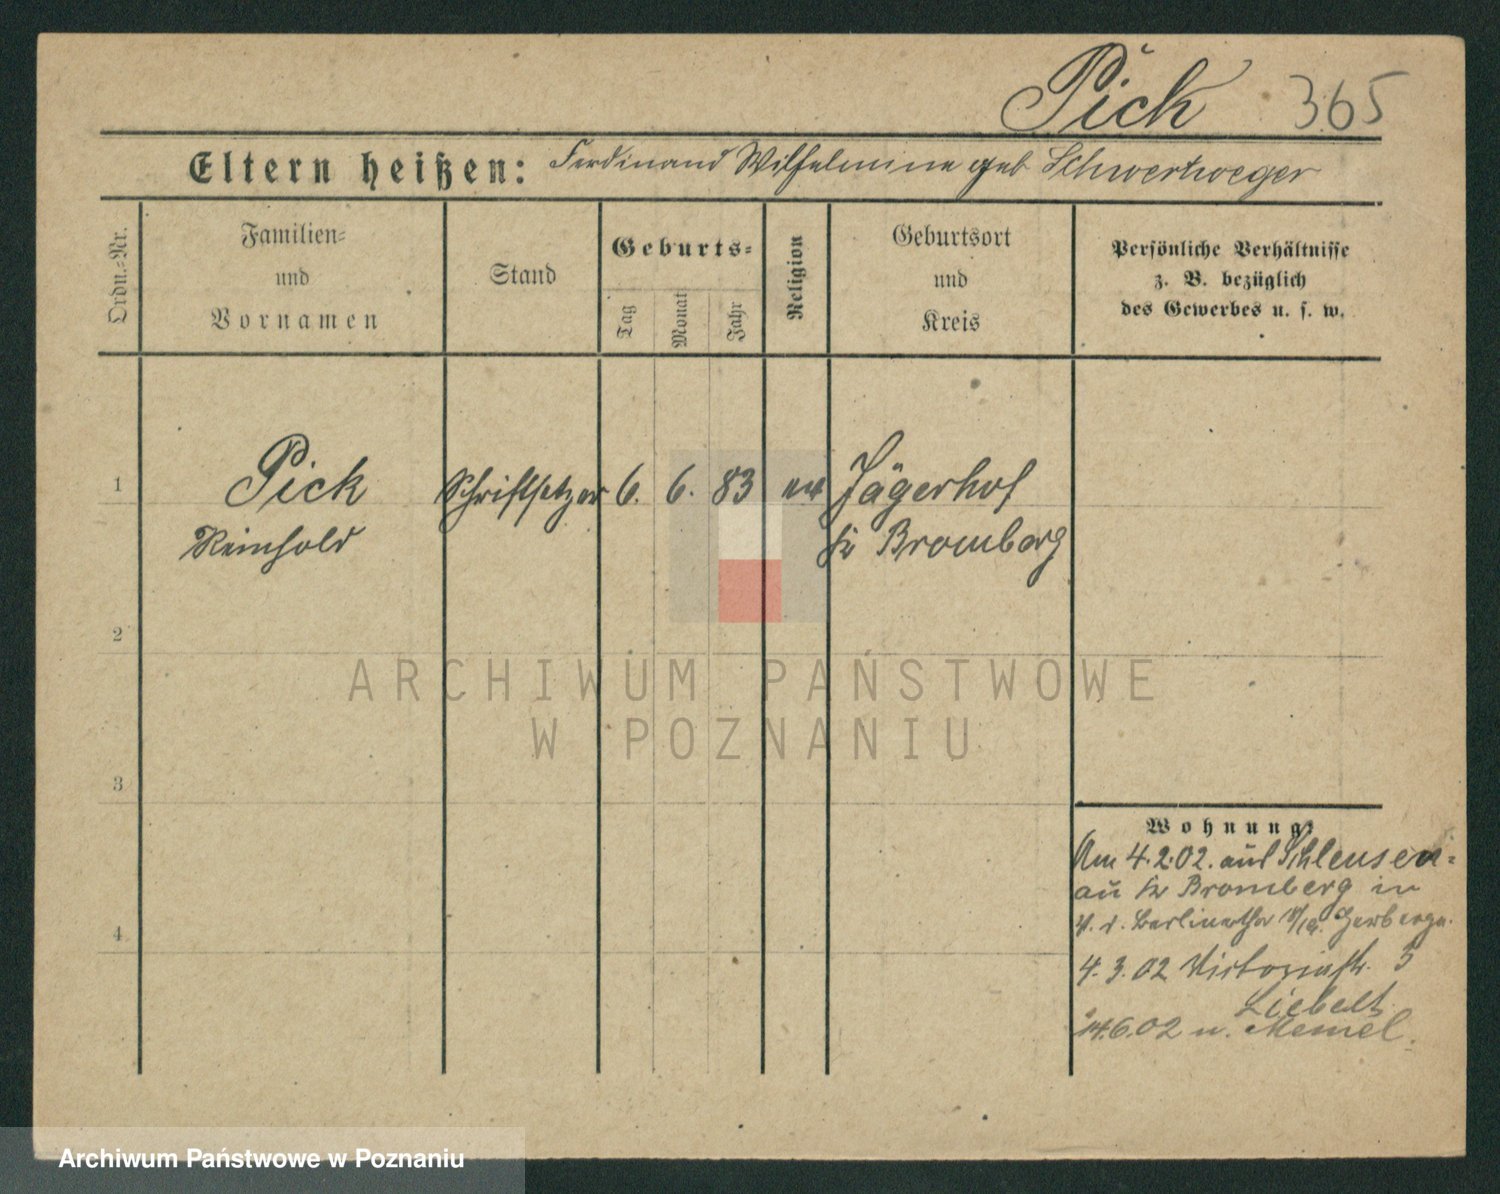 Pick 365
Eltern heißen: Ferdinand Wilhelmine geb Schwertweger
Ordn.-Nr.
Familien-
und
Vornamen
Stand
Geburts-
Tag
Monat
Jahr
Religion
Geburtsort
und
Kreis
Persönliche Verhältnisse
z. B. bezüglich
des Gewerbes u. s. w.
1 Pick Schriftsetzer 6. 6. 83 ev Jägerhof
Reinhold Kr Bromberg
2
ARCHIWUM PAŃSTWOWE
W POZNANIU
3
Wohnung:
Am 4.2.02. aus Schleusen-
au Kr Bromberg in
4
4.3.02 Victoriastr. 5
Liebelt
14.6.02 n. Memel.
Archiwum Państwowe w Poznaniu